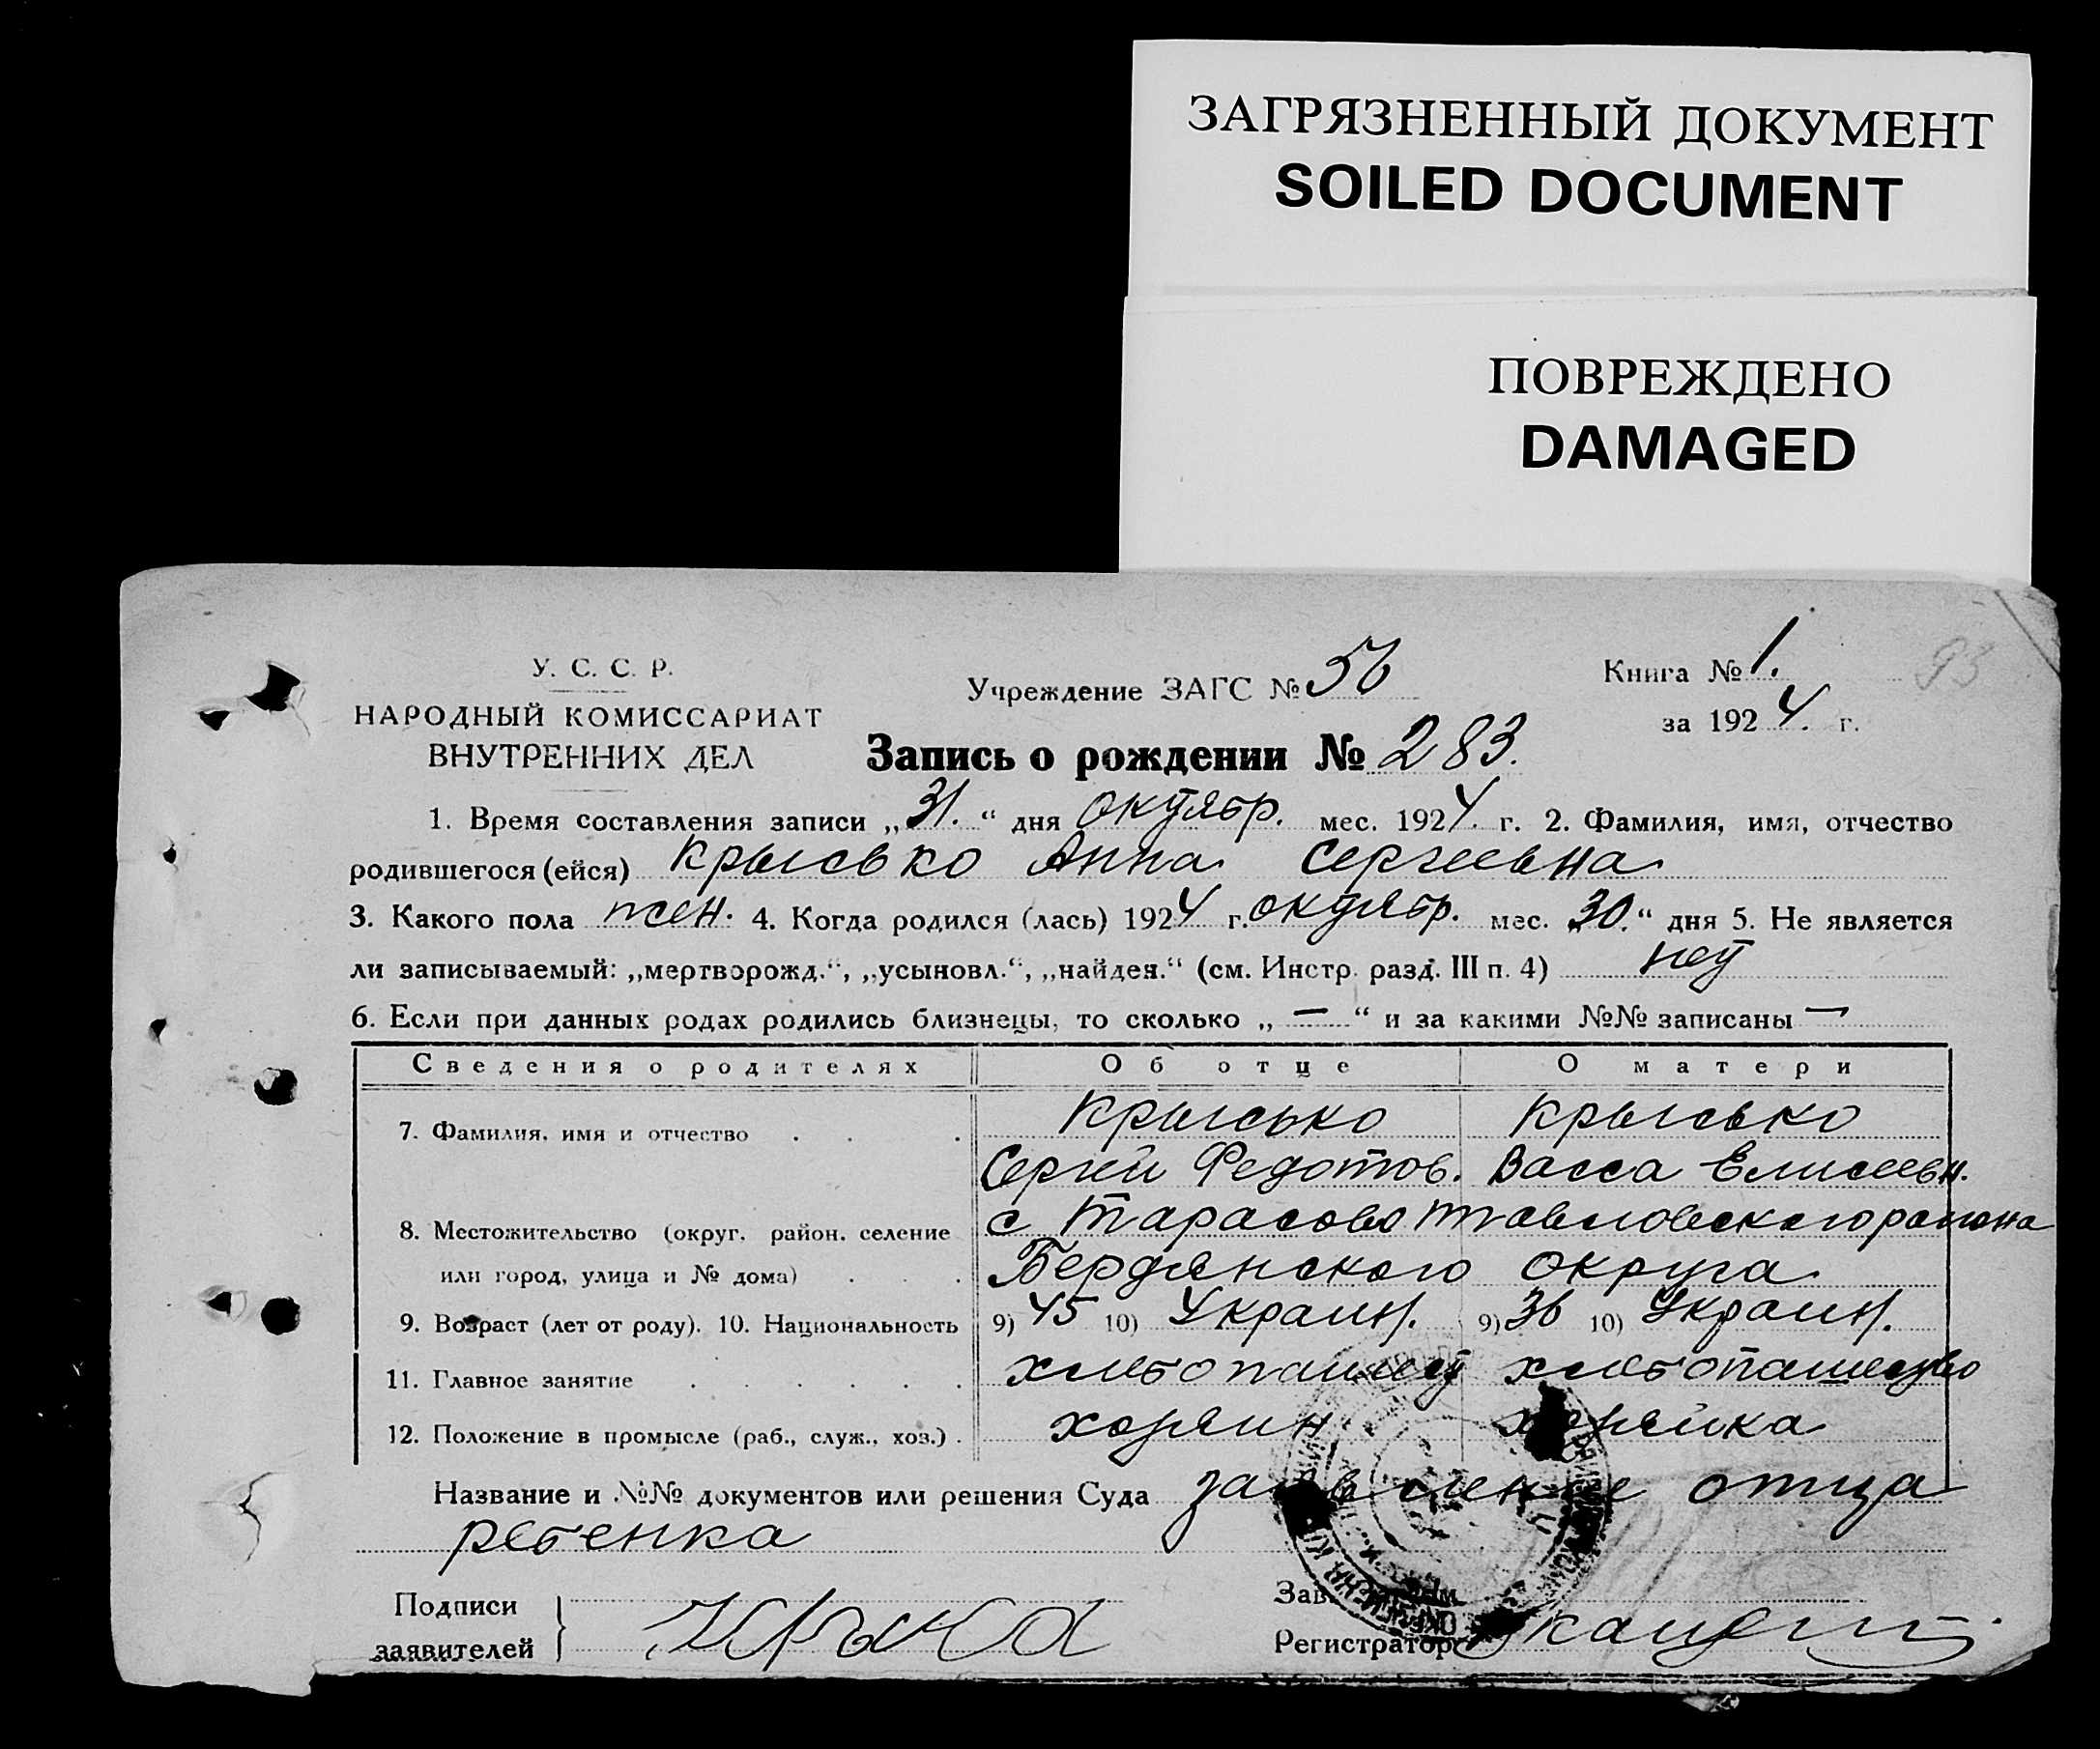 ЗАГРЯЗНЕННЫЙ ДОКУМЕНТ
SOILED DOCUMENT
ПОВРЕЖДЕНО
DAMAGED
93
У. С. С. Р.
НАРОДНЫЙ КОМИССАРИАТ
ВНУТРЕННИХ ДЕЛ
Учреждение ЗАГС № 56
Книга № 1.
за 1924. г.
Запись о рождении № 283.
1. Время составления записи „31.“ дня октябр. мес. 1924. г. 2. Фамилия, имя, отчество
родившегося (ейся) Крысько Анна Сергеевна
3. Какого пола жен. 4. Когда родился (лась) 1924 г. октябр. мес. „30.“ дня 5. Не является
ли записываемый: „мертворожд.“, „усыновл.“, „найден.“ (см. Инстр. разд. III п. 4) нет
6. Если при данных родах родились близнецы, то сколько „ — “ и за какими №№ записаны —
Сведения о родителях Об отце О матери
7. Фамилия, имя и отчество Крысько Крысько
Сергей Федотов. Васса Елисеевн.
8. Местожительство (округ, район, селение с Тарасовка района
или город, улица и № дома) Бердянского округа
9. Возраст (лет от роду). 10. Национальность 9) 45 10) Украин. 9) 36 10) Украин.
11. Главное занятие хлебопашест хлебопашество
12. Положение в промысле (раб., служ., хоз.) хозяин хозяйка
Название и №№ документов или решения Суда заявление отца
ребенка
Подписи
заявителей
Регистратор